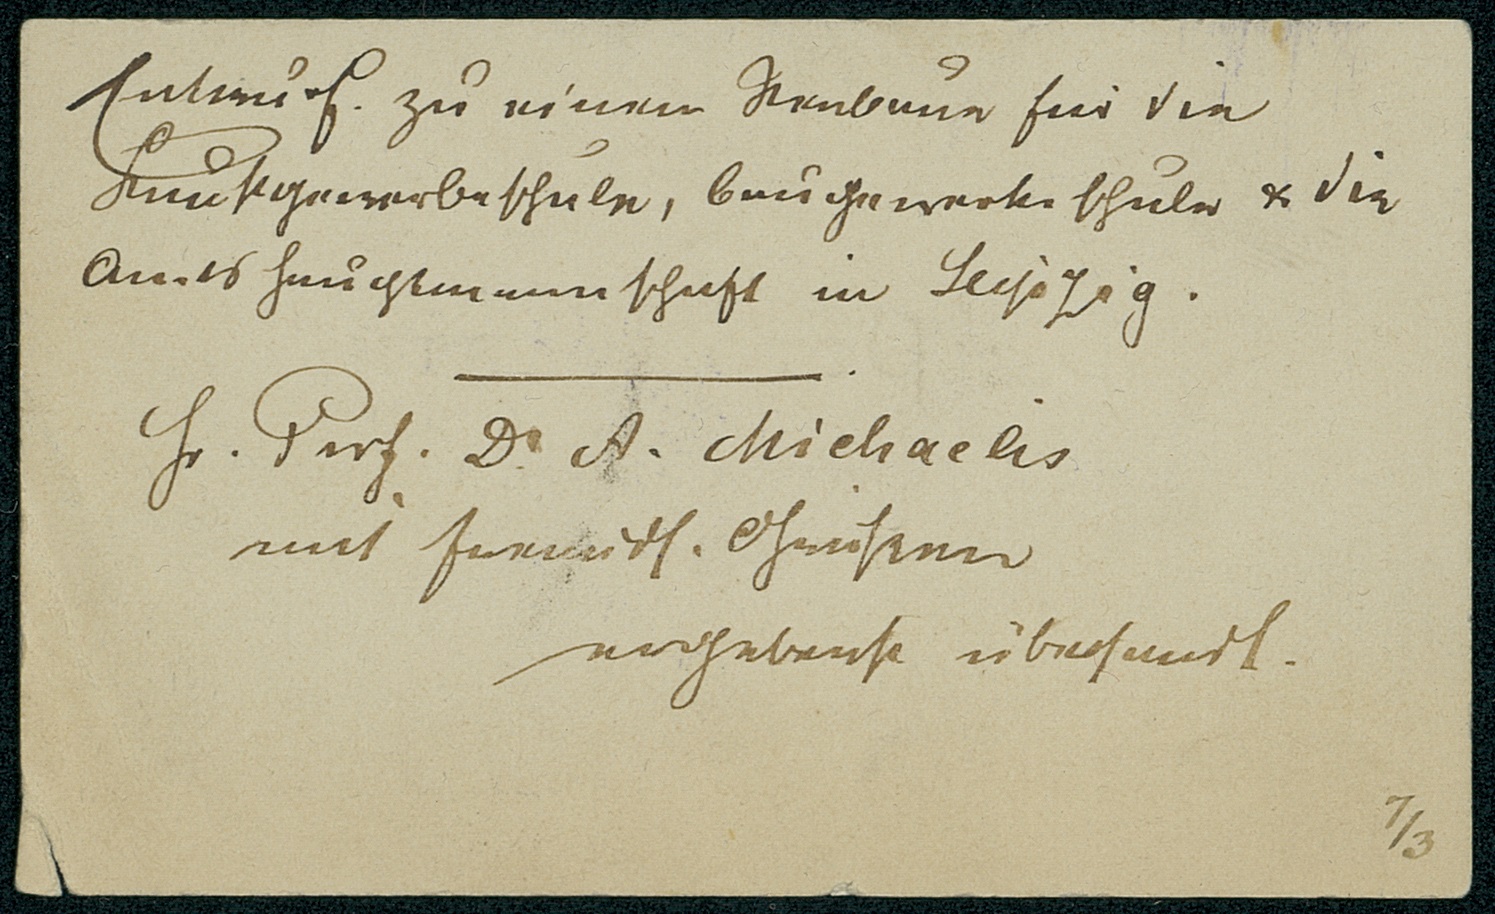 Entwurf. zu einem Neubau für die
Kunstgewerbeschule, baugewerkeschule & die
Amtshauptmannschaft in Leipzig.
Hr. Prof. Dr A. Michaelis
mit freundl. Grüssen
ergebenst übersandt.
7/3